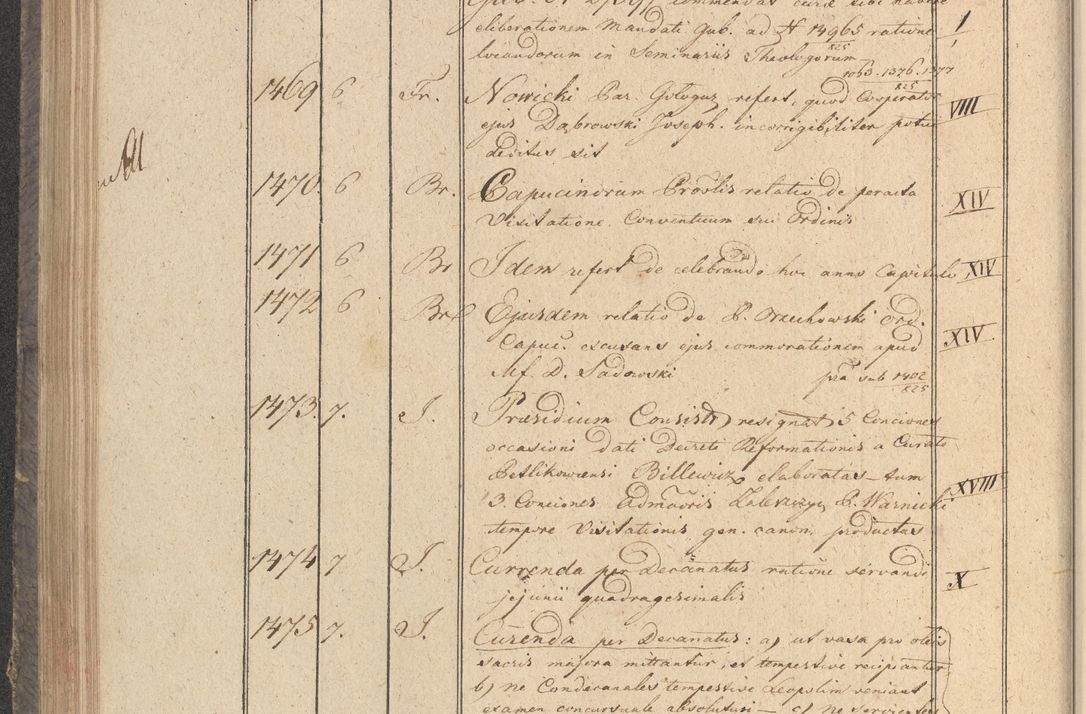 eliberationem Mandati Gub. ad N 14965 ratione I
825
locandorum in Seminariis Theologorum
1063.1376.1377
825
1469 6 Fr. Nowicki Par. Gologur refert, quod Cooperator VIII
ejus Dąbrowski Joseph. incorrigibiliter potui
deditus sit
1470. 6 Br. Capucinorum relatio de peracta XIV
Visitatione Conventuum sui Ordinis
1471 6 Br Idem refert de celebrando hoc anno Capitulo XIV
1472 6 Br Ejusdem relatio de P. Orzechowski Ord.
Capuc. excusans ejus commorationem apud XIV
Mf. D. Sadowski
sub 1402
825
1473. 7. J. Præsidium resignat 5 Conciones
occasioni dati Decreti Reformationis a Curato
Petlikowiensi Billewicz elaboratas – tum
3 Conciones P. Warnicki XVIII
tempore Visitationis gen. canon. productas
1474 7 J. Currenda per Decanatus ratione servandi X
jejunii quadragesimalis
1475 7. J. Curenda per Decanatus: a) ut vasa pro oleis
sacris majora mittantur, et tempestive recipiantur
b) ne Condecanales tempestive Leopolim veniant
examen concursuale absoluturi – c) ne